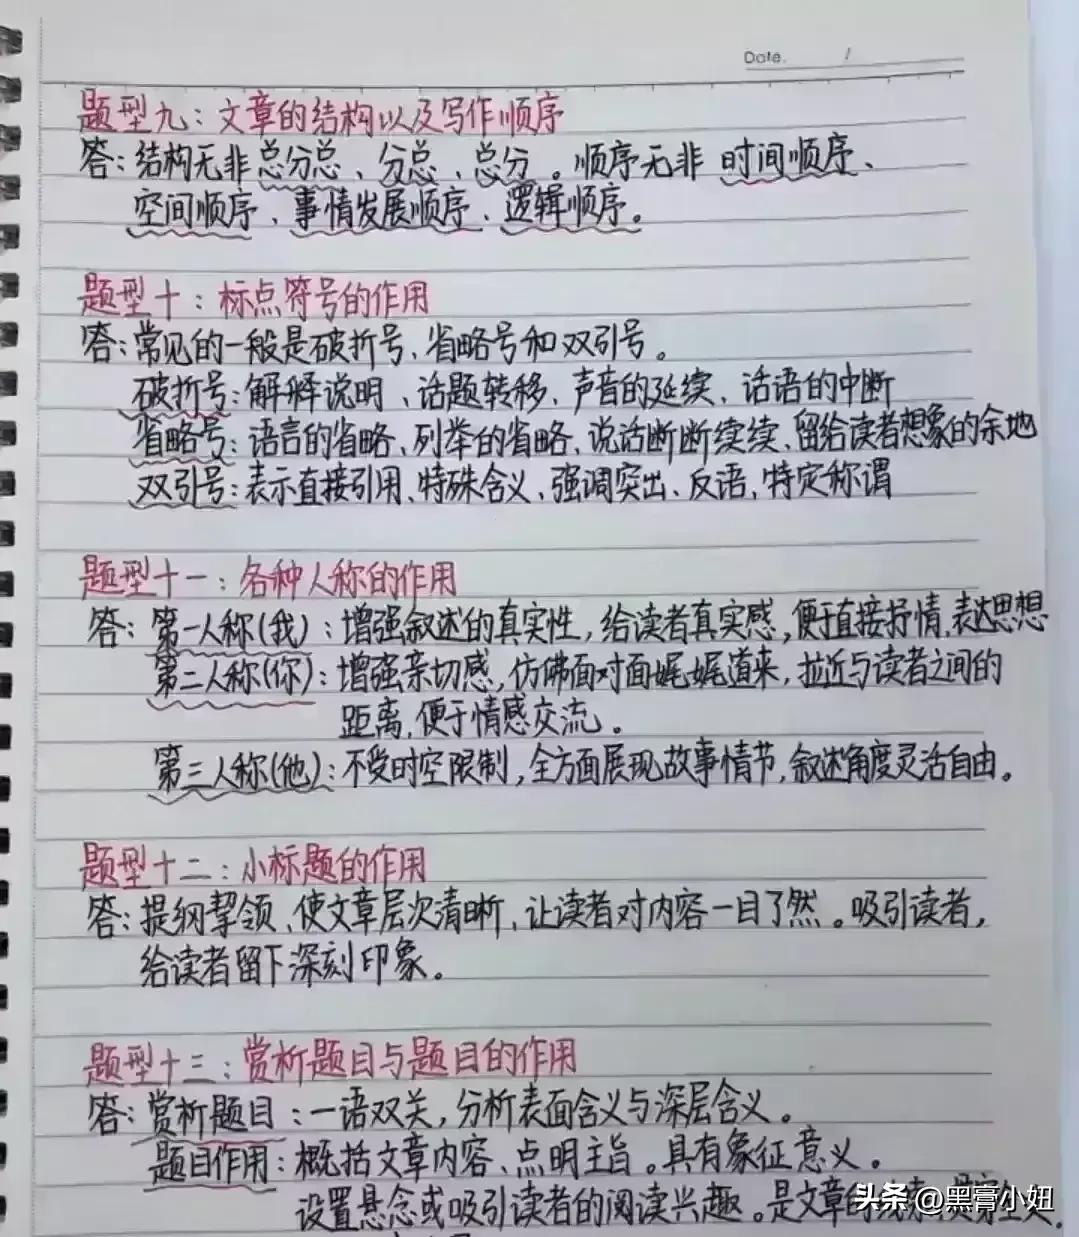 Date. /
题型九：文章的结构以及写作顺序
答：结构无非总分总、分总、总分。顺序无非 时间顺序、
空间顺序、事情发展顺序、逻辑顺序。
题型十：标点符号的作用
答：常见的一般是破折号、省略号和双引号。
破折号：解释说明、话题转移、声音的延续、话语的中断
省略号：语言的省略、列举的省略、说话断断续续、留给读者想象的余地
双引号：表示直接引用、特殊含义、强调突出、反语、特定称谓
题型十一：各种人称的作用
答：第一人称(我)：增强叙述的真实性，给读者真实感，便于直接抒情,表达思想
第二人称(你)：增强亲切感，仿佛面对面娓娓道来，拉近与读者之间的
距离，便于情感交流。
第三人称(他)：不受时空限制，全方面展现故事情节，叙述角度灵活自由。
题型十二：小标题的作用
答：提纲挈领、使文章层次清晰、让读者对内容一目了然。吸引读者，
给读者留下深刻印象。
题型十三：赏析题目与题目的作用
答：赏析题目：一语双关，分析表面含义与深层含义。
题目作用：概括文章内容、点明主旨。具有象征意义。
设置悬念或吸引读者的阅读兴趣。是文章的
头条 @黑膏小妞